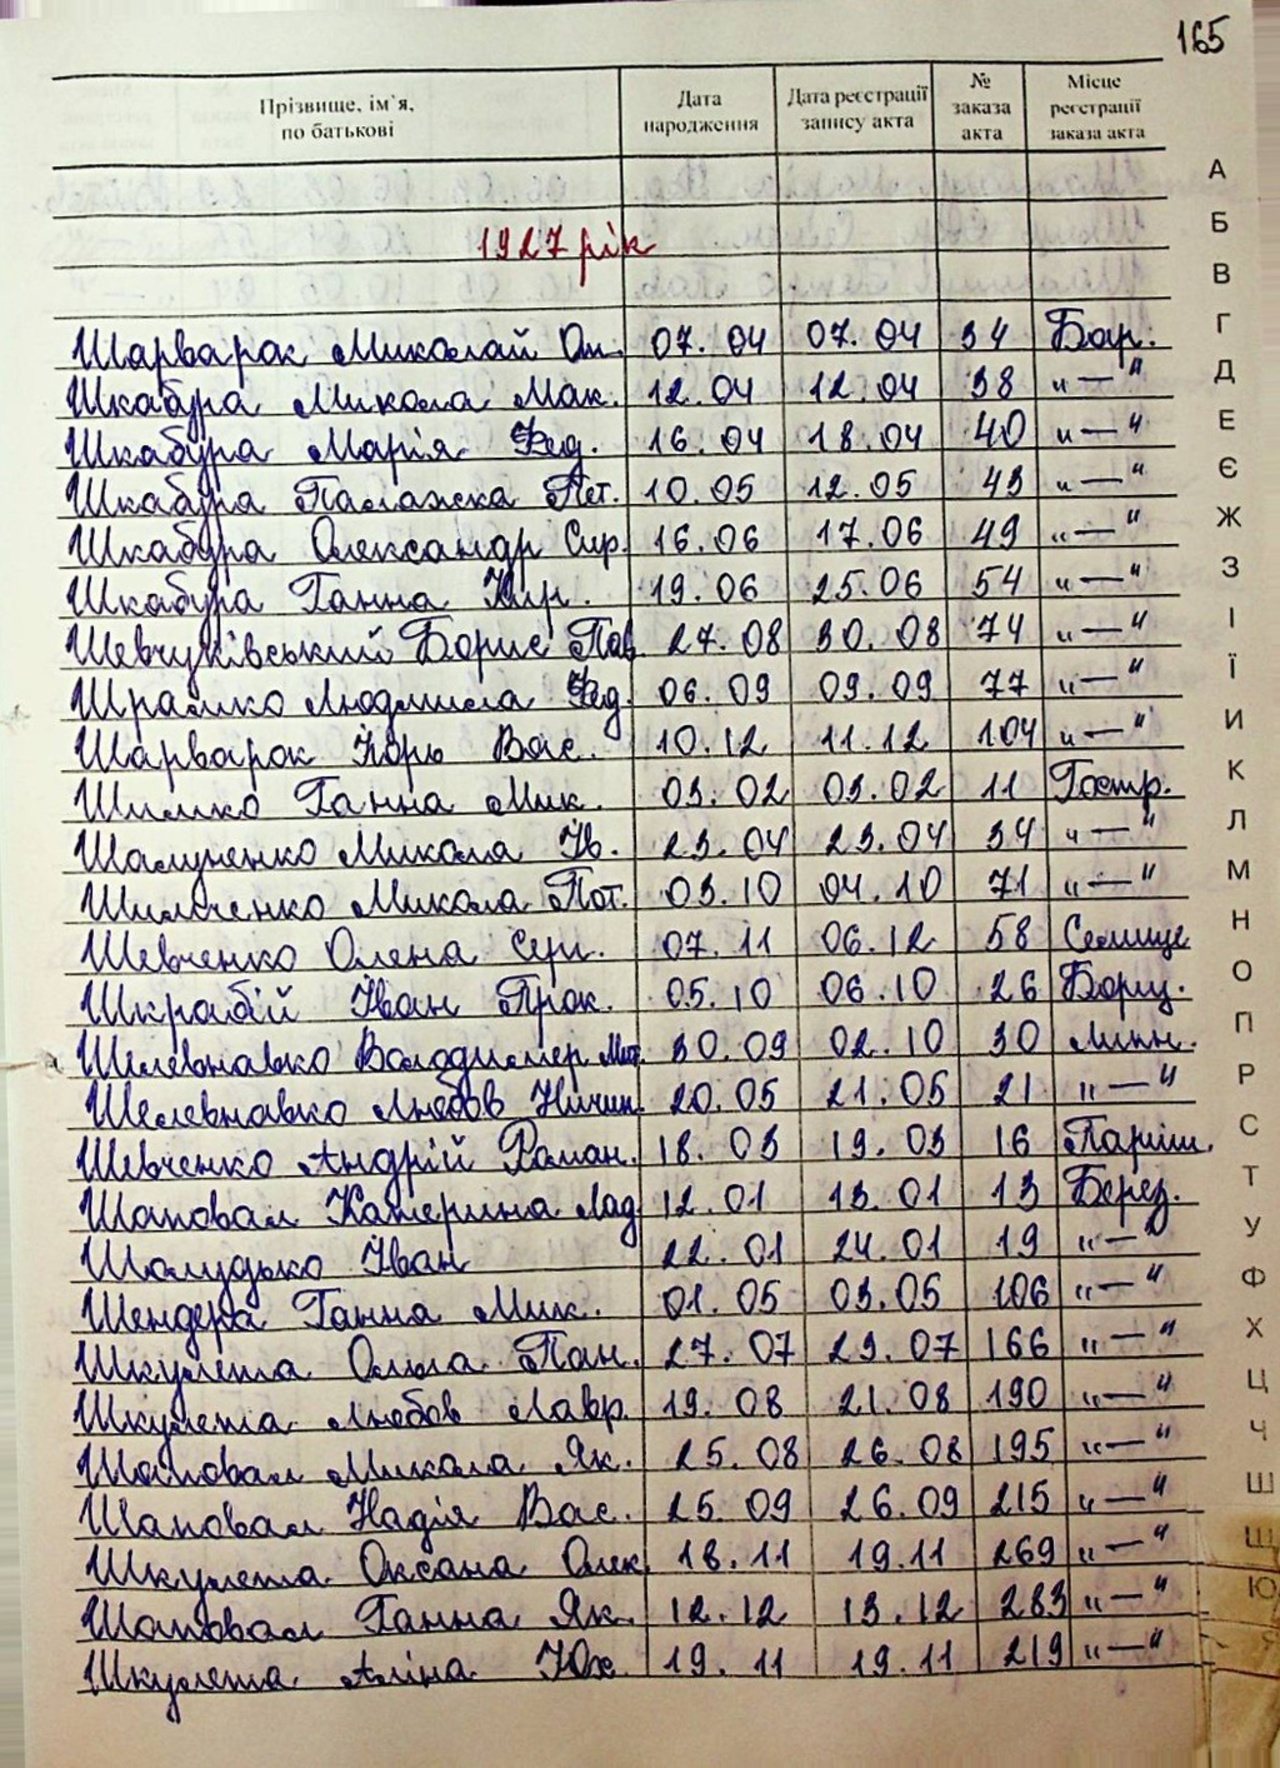 165
Прізвище, ім`я, по батькові Дата народження Дата реєстрації запису акта № заказа акта Місце реєстрації заказа акта
1927 рік
Шарварок Миколай Ом. 07.04 07.04 34 Бар.
Шкабура Микола Мак. 12.04 12.04 38 „—"
Шкабура Марія Фед. 16.04 18.04 40 „—"
Шкабура Палажка Пет. 10.05 12.05 43 „—"
Шкабура Олександр Сир. 16.06 17.06 49 „—"
Шкабура Ганна Кир. 19.06 25.06 54 „—"
Шевчуківський Борис Пав. 27.08 30.08 74 „—"
Шрамко Людмила Фед. 06.09 09.09 77 „—"
Шарварок Ігорь Вас. 10.12 11.12 104 „—"
Шимко Ганна Мик. 03.02 03.02 11 Гостр.
Шалупенко Микола Ів. 23.04 23.04 34 „—"
Шильченко Микола Пот. 03.10 04.10 71 „—"
Шевченко Олена Серг. 07.11 06.12 58 Селище
Шкрабій Іван Прок. 05.10 06.10 26 Борщ.
Шелевнавко Володимер Мит. 30.09 02.10 30 Липн.
Шелевнавко Любов Ничип. 20.05 21.05 21 „—"
Шевченко Андрій Роман. 18.03 19.03 16 Париш.
Шаповал Катерина Лад. 12.01 13.01 13 Берез.
Шалудько Іван 22.01 24.01 19 „—"
Шендера Ганна Мик. 01.05 03.05 106 „—"
Шкулета Ольга Пан. 27.07 29.07 166 „—"
Шкулета Любов Лавр. 19.08 21.08 190 „—"
Шаповал Микола Як. 25.08 26.08 195 „—"
Шаповал Надія Вас. 25.09 26.09 215 „—"
Шкулета Оксана Олек. 18.11 19.11 269 „—"
Шаповал Ганна Як. 12.12 13.12 283 „—"
Шкулета Аліна Юх. 19.11 19.11 219 „—"
А
Б
В
Г
Д
Е
Є
Ж
З
І
Ї
И
К
Л
М
Н
О
П
Р
С
Т
У
Ф
Х
Ц
Ч
Ш
Щ
Ю
Я